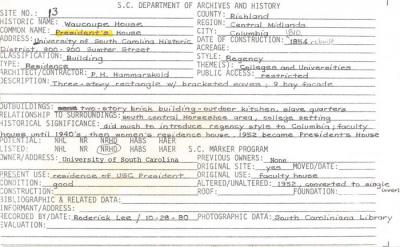 S.C. DEPARTMENT OF ARCHIVES AND HISTORY
SITE NO.: 13 COUNTY: Richland
HISTORIC NAME: Wauchope House REGION: Central Midlands
COMMON NAME: President's House CITY: Columbia
ADDRESS: University of South Carolina Historic District, 900-900 Sumter Street DATE OF CONSTRUCTION: 1854
ACREAGE:
CLASSIFICATION: Building STYLE: Regency
TYPE: Residence THEME(S): Colleges and Universities
ARCHITECT/CONTRACTOR: P.H. Hammarskold PUBLIC ACCESS: restricted
DESCRIPTION: Three-story rectangle w/ bracketed eaves; 9 bay facade
OUTBUILDINGS: two-story brick building-outdoor kitchen, slave quarters
RELATIONSHIP TO SURROUNDINGS: south central Horseshoe area, college setting
HISTORICAL SIGNIFICANCE: did much to introduce regency style to Columbia; faculty
house until 1940's, then women's residence house. 1952 became President's House
POTENTIAL: NHL NR NRHD HABS HAER
LISTED: NHL NR NRHD HABS HAER S.C. MARKER PROGRAM
OWNER/ADDRESS: University of South Carolina PREVIOUS OWNERS: None
ORIGINAL SITE: yes MOVED/DATE:
PRESENT USE: residence of USC President ORIGINAL USE: faculty house
CONDITION: good ALTERED/UNALTERED: 1952, converted to single
CONSTRUCTION: ROOF: FOUNDATION: (over)
BIBLIOGRAPHIC & RELATED DATA:
INFORMANT/ADDRESS:
RECORDED BY/DATE: Roderick Lee / 10-28-80 PHOTOGRAPHIC DATA: South Caroliniana Library